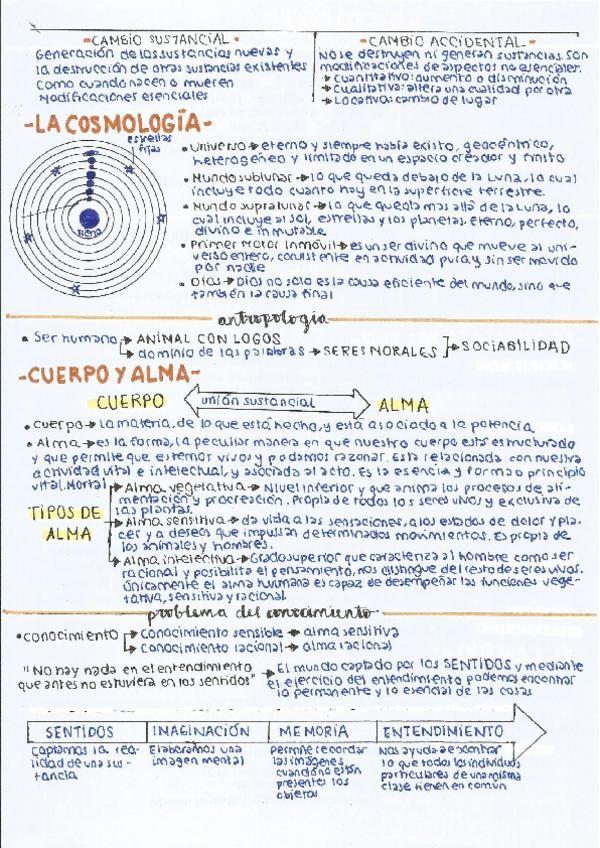 -CAMBIO SUSTANCIAL-
Generación de las sustancias nuevas y
la destrucción de otras sustancias existentes
como cuando nacen o mueren
Modificaciones esenciales
-CAMBIO ACCIDENTAL-
No se destruyen ni generan sustancias. Son
modificaciones de aspectos no esenciales.
→ Cuantitativo: aumento o disminución
→ Cualitativa: altera una cualidad por otra
→ Locativa: cambio de lugar
-LA COSMOLOGÍA-
estrellas
fijas
tierra
• Universo → eterno y siempre había existo, geocéntrico,
heterogéneo y limitado en un espacio creador y finito
• Mundo sublunar → lo que queda debajo de la Luna, lo cual
incluye todo cuanto hay en la superficie terrestre.
• Mundo supralunar → lo que queda más allá de la Luna, lo
cual incluye al sol, estrellas y los planetas. Eterno, perfecto,
divino e inmutable.
• Primer Motor Inmóvil → es un ser divino que mueve al uni-
verso entero, consistente en actividad pura y sin ser movido
por nadie
• Dios → Dios no solo es la causa eficiente del mundo, sino que
también la causa final
antropología
• Ser humano → ANIMAL CON LOGOS
→ dominio de las palabras → SERES MORALES → SOCIABILIDAD
-CUERPO Y ALMA-
CUERPO unión sustancial ALMA
• Cuerpo → la materia, de lo que está hecho, y está asociado a la potencia.
• Alma → es la forma, la peculiar manera en que nuestro cuerpo está estructurado
y que permite que estemos vivos y podamos razonar. Está relacionada con nuestra
actividad vital e intelectual, y asociada al acto. Es la esencia y forma o principio
vital. Mortal
TIPOS DE
ALMA
→ Alma vegetativa → Nivel inferior y que anima los procesos de ali-
mentación y procreación. Propia de todos los seres vivos y exclusiva de
las plantas.
→ Alma sensitiva → da vida a las sensaciones, a los estados de dolor y pla-
cer y a deseos que impulsan determinados movimientos. Es propia de
los animales y hombres.
→ Alma intelectiva → Grado superior que caracteriza al hombre como ser
racional y posibilita el pensamiento, nos distingue del resto de seres vivos.
Únicamente el alma humana es capaz de desempeñar las funciones vege-
tativa, sensitiva y racional.
problema del conocimiento
• CONOCIMIENTO → Conocimiento sensible → alma sensitiva
→ Conocimiento racional → alma racional
"No hay nada en el entendimiento
que antes no estuviera en los sentidos"
→ El mundo captado por los SENTIDOS y mediante
el ejercicio del entendimiento podemos encontrar
lo permanente y lo esencial de las cosas
SENTIDOS IMAGINACIÓN MEMORIA ENTENDIMIENTO
Captamos la rea-
lidad de una sus-
tancia
Elaboramos una
imagen mental
Permite recordar
las imágenes
cuando no están
presentes los
objetos
Nos ayuda a econtrar
lo que todos los individuos
particulares de una misma
clase tienen en común